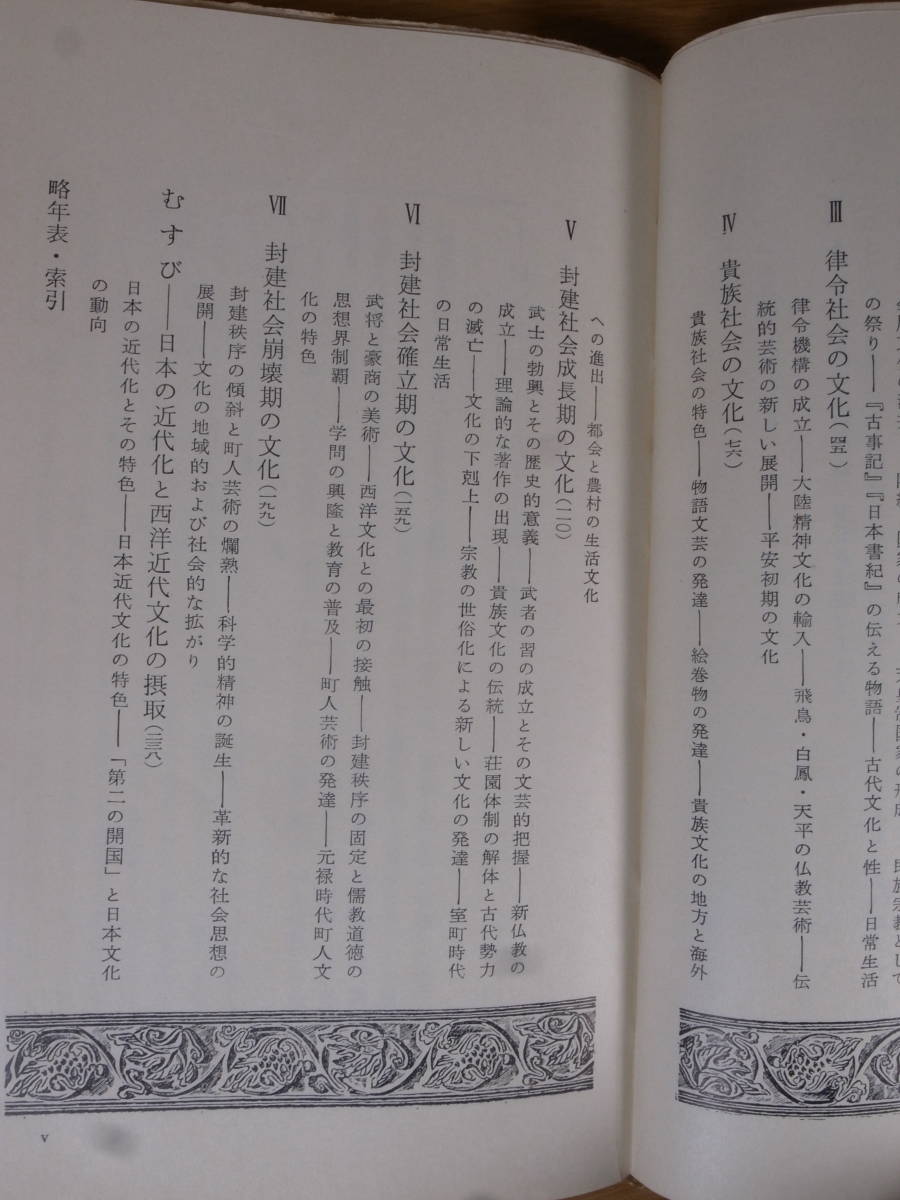 の祭り――『古事記』『日本書紀』の伝える物語――古代文化と性――日常生活
Ⅲ 律令社会の文化(四五)
律令機構の成立――大陸精神文化の輸入――飛鳥・白鳳・天平の仏教芸術――伝
統的芸術の新しい展開――平安初期の文化
Ⅳ 貴族社会の文化(七六)
貴族社会の特色――物語文芸の発達――絵巻物の発達――貴族文化の地方と海外
への進出――都会と農村の生活文化
Ⅴ 封建社会成長期の文化(一二〇)
武士の勃興とその歴史的意義――武者の習の成立とその文芸的把握――新仏教の
成立――理論的な著作の出現――貴族文化の伝統――荘園体制の解体と古代勢力
の滅亡――文化の下剋上――宗教の世俗化による新しい文化の発達――室町時代
の日常生活
Ⅵ 封建社会確立期の文化(一五九)
武将と豪商の美術――西洋文化との最初の接触――封建秩序の固定と儒教道徳の
思想界制覇――学問の興隆と教育の普及――町人芸術の発達――元禄時代町人文
化の特色
Ⅶ 封建社会崩壊期の文化(一九九)
封建秩序の傾斜と町人芸術の爛熟――科学的精神の誕生――革新的な社会思想の
展開――文化の地域的および社会的な拡がり
むすび――日本の近代化と西洋近代文化の摂取(二三八)
日本の近代化とその特色――日本近代文化の特色――「第二の開国」と日本文化
の動向
略年表・索引
v